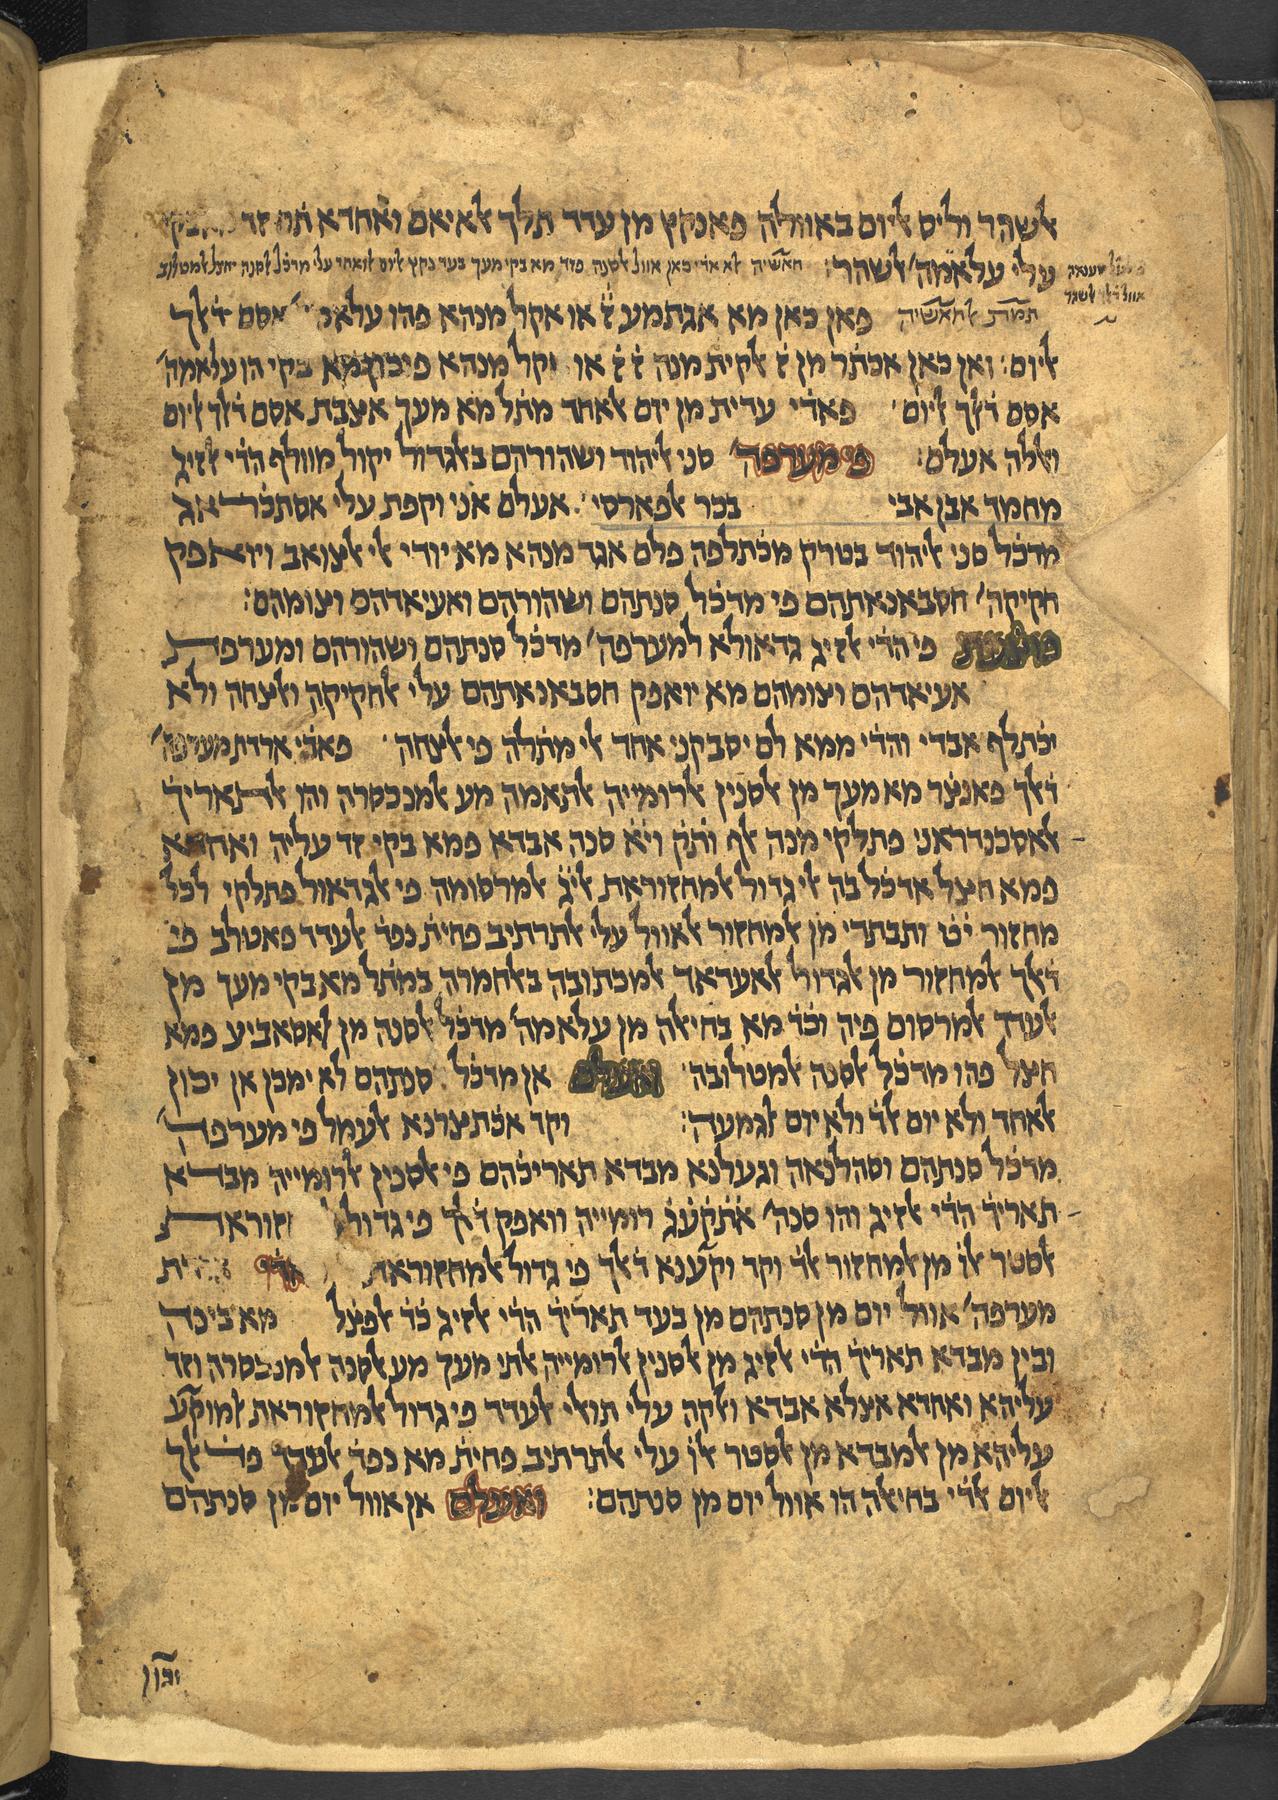 לשהר וליס ליום באוולה פאנקץ מן עדד תלך לאיאם ואחדא
עלי עלאמה֗ לשהר: חאשיה לא אדי כאן אוול לסנה פזד מא בקי מעך בעד נקץ ליום לואחד עלי מדכ֗ל לסנה יחצל למטלוב
תמת לחאשיה פאן כאן מא אגתמע ז֗ או אקל מנהא פהו אסם ד֗לך
ליום: ואן כאן אכת֗ר מן ז֗ לקית מנה ז֗ ז֗ או אקל מנהא פיכון מא בקי הו עלאמה֗
אסם ד֗לך ליום פאד֗י עדית מן יום לאחד מת֗ל מא מעך אצבת אסם ד֗לך ליום
ואללה אעלם: פי מערפה֗ סני ליהוד ושהורהם באלגדול יקול מוולף הד֗י לזיג
מחמד אבן אבי בכר לפארסי אעלם אני וקפת עלי אסתכ֗ראג
מדכ֗ל סני ליהוד בטרק מכ֗תלפה פלם אגד מנהא מא יודי לי לצואב ויואפק
חקיקה֗ חסבאנאתהם פי מדכ֗ל סנתהם ושהורהם ואעיאדהם וצומהם:
פי הד֗י לזיג גדאולא למערפה֗ מדכ֗ל סנתהם ושהורהם ומערפת
אעיאדהם וצומהם מא יואפק חסבאנאתהם עלי לחקיקה ולצחה ולא
יכ֗תלף אבדי והד֗י ממא לם יסבקני אחד לי מת֗לה פי לצחה פאד֗י ארדת מערפה֗
ד֗לך פאנצ֗ר מא מעך מן לסנין לרומייה לתאמה מע למנכסרה והן לתאריך֗
לאסכנדראני פתלקי מנה לף ות֗ק֗ וי֗א֗ סנה אבדא פמא בקי זד עליה ואחדא
פמא חצל אדכ֗ל בה לי גדול למחזוראת לי֗ג֗ למרסומה פי לגדאול פתלקי לכל
מחזור י֗ט֗ ותבתדי מן למחזור לאוול עלי לתרתיב פחית֗ נפד֗ לעדד פאטלב פי
ד֗לך למחזור מן לגדול לאעדאד למכתובה באלחמרה במת֗ל מא בקי מעך מן
לעדד למרסום פיה וכ֗ד֗ מא בחיאלה מן עלאמה֗ מדכ֗ל לסנה מן לאסאביע פמא
חצל פהו מדכ֗ל לסנה למטלובה ואעלם אן מדכ֗ל סנתהם לא ימכן אן יכון
לאחד ולא יום לד֗ ולא יום לגמעה: וקד אכ֗תצרנא לעמל פי מערפה֗
מדכ֗ל סנתהם וסהלנאה וגעלנא מבדא תאריכ֗הם פי לסנין לרומייה מבדא
תאריך֗ הד֗י לזיג והו סנה֗ רומייה וואפק ד֗לך פי גדול
לסטר לו֗ מן למחזור לד֗ וקד וקענא ד֗לך פי גדול למחזוראת
מערפה֗ אוול יום מן סנתהם מן בעד תאריך֗ הד֗י לזיג כ֗ד֗ לפצ֗ל מא בינה
ובין מבדא תאריך֗ הד֗י לזיג מן לסנין לרומייה לתי מעך מע לסנה למנכסרה וזד
עליהא ואחדא אצלא אבדא ולקה עלי תואלי לעדד פי גדול למחזוראת למוקע
עליהא מן למבדא מן לסטר לו֗ עלי לתרתיב פחית֗ מא נפד֗ לעדד פד֗לך
ליום לד֗י בחיאלה הו אוול יום מן סנתהם: ואעלם אן אוול יום מן סנתהם
יכון